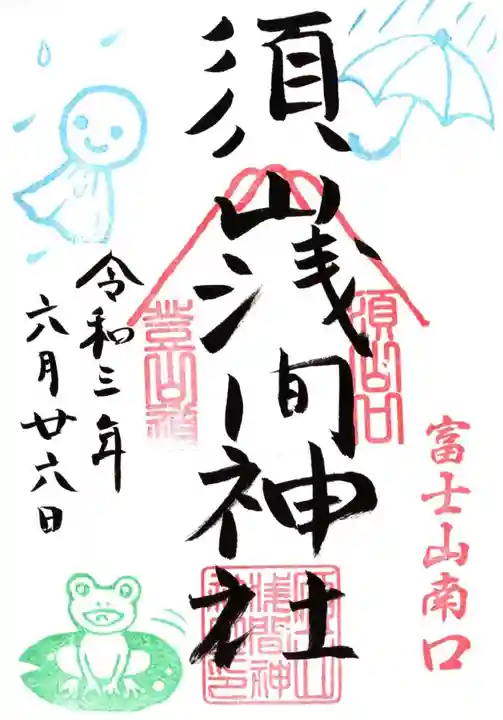 富士山南口
須山口
須山浅間神社
登山道
令和三年
六月廿六日